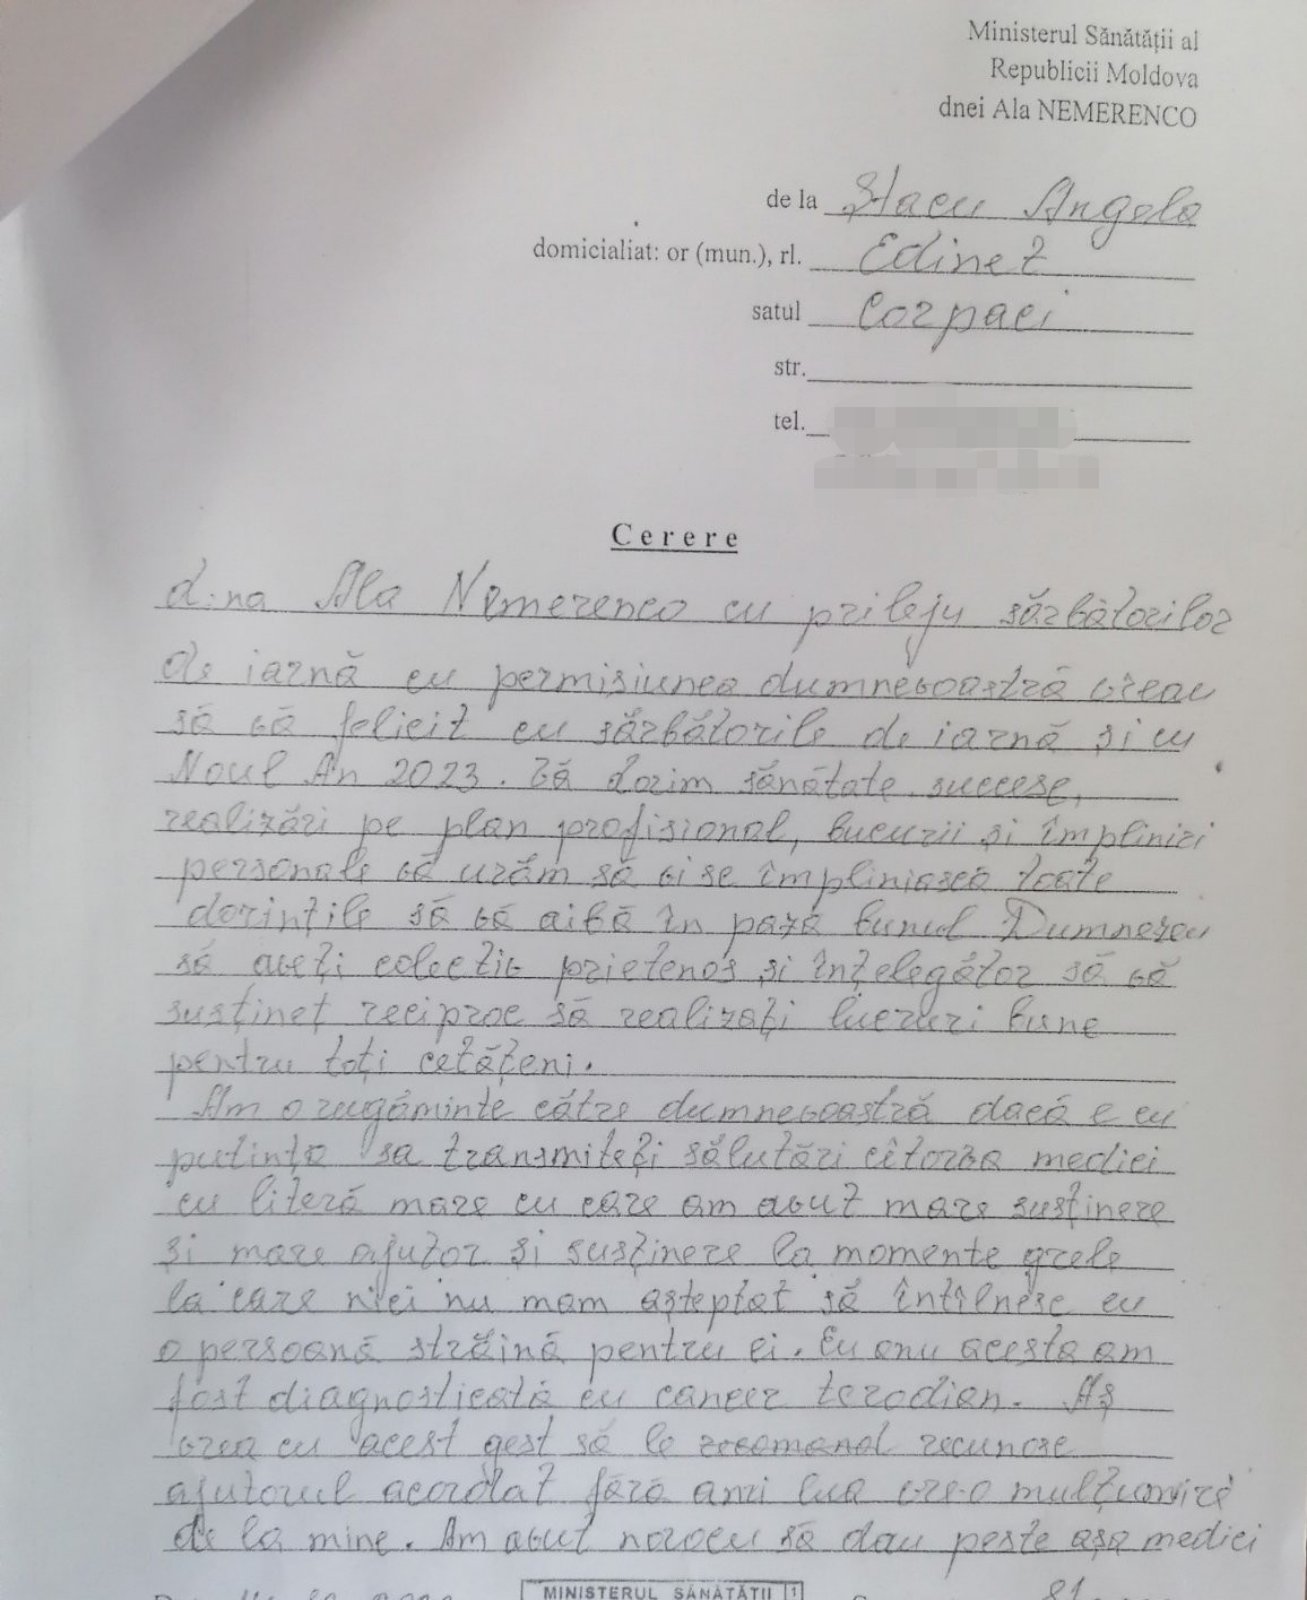 Ministerul Sănătății al
Republicii Moldova
dnei Ala NEMERENCO
de la Stacu Angela
domicialiat: or (mun.), rl. Edineț
satul Corpaci
str.
tel.
Cerere
d.na Ala Nemerenco cu prileju sărbătorilor
de iarnă cu permisiunea dumnevoastră vreau
să vă felicit cu sărbătorile de iarnă și cu
Noul An 2023. Vă dorim sănătate, succese,
realizări pe plan profisional, bucurii și împliniri
personale vă urăm să vi se împliniască toate
dorințile să vă aibă în pază bunul Dumnezeu
să aveți colectiv prietenos și înțelegător să vă
susțineț reciproc să realizați lucruri bune
pentru toți cetățeni.
Am o rugăminte către dumnevoastră dacă e cu
putința sa transmiteți sălutări cîtorva medici
cu literă mare cu care am avut mare susținere
și mare ajutor și susținere la momente grele
la care nici nu mam așteptat să întîlnesc eu
o persoană străină pentru ei. Eu anu acesta am
fost diagnosticată cu cancer terodian. Aș
vrea cu acest gest să le recunosc
ajutorul acordat fără ami lua vre-o mulțumire
de la mine. Am avut norocu să dau peste așa medici
MINISTERUL SĂNĂTĂȚII 1